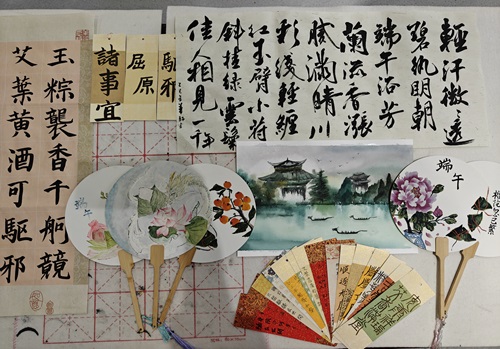 輕汗微々透
碧紈明朝
端午浴芳
蘭流香漲
膩滿晴川
彩綫輕纏
紅玉臂小符
斜挂綠雲鬟
佳人相見一千年
驅邪
屈原
諸事宜
玉粽襲香千舸競
艾葉黄酒可驅邪
端午
端午